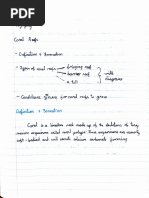 Coral Reefs
- Definition & Formation
- Types of coral reefs → fringing reef
barrier reef
atoll
with diagrams
- Conditions for coral reefs to grow
Definition & Formation
Coral is a limestone rock made up of the skeletons of tiny
marine organisms called coral polyps. These organisms are mostly
soft-bodied and will secrete calcium carbonate forming